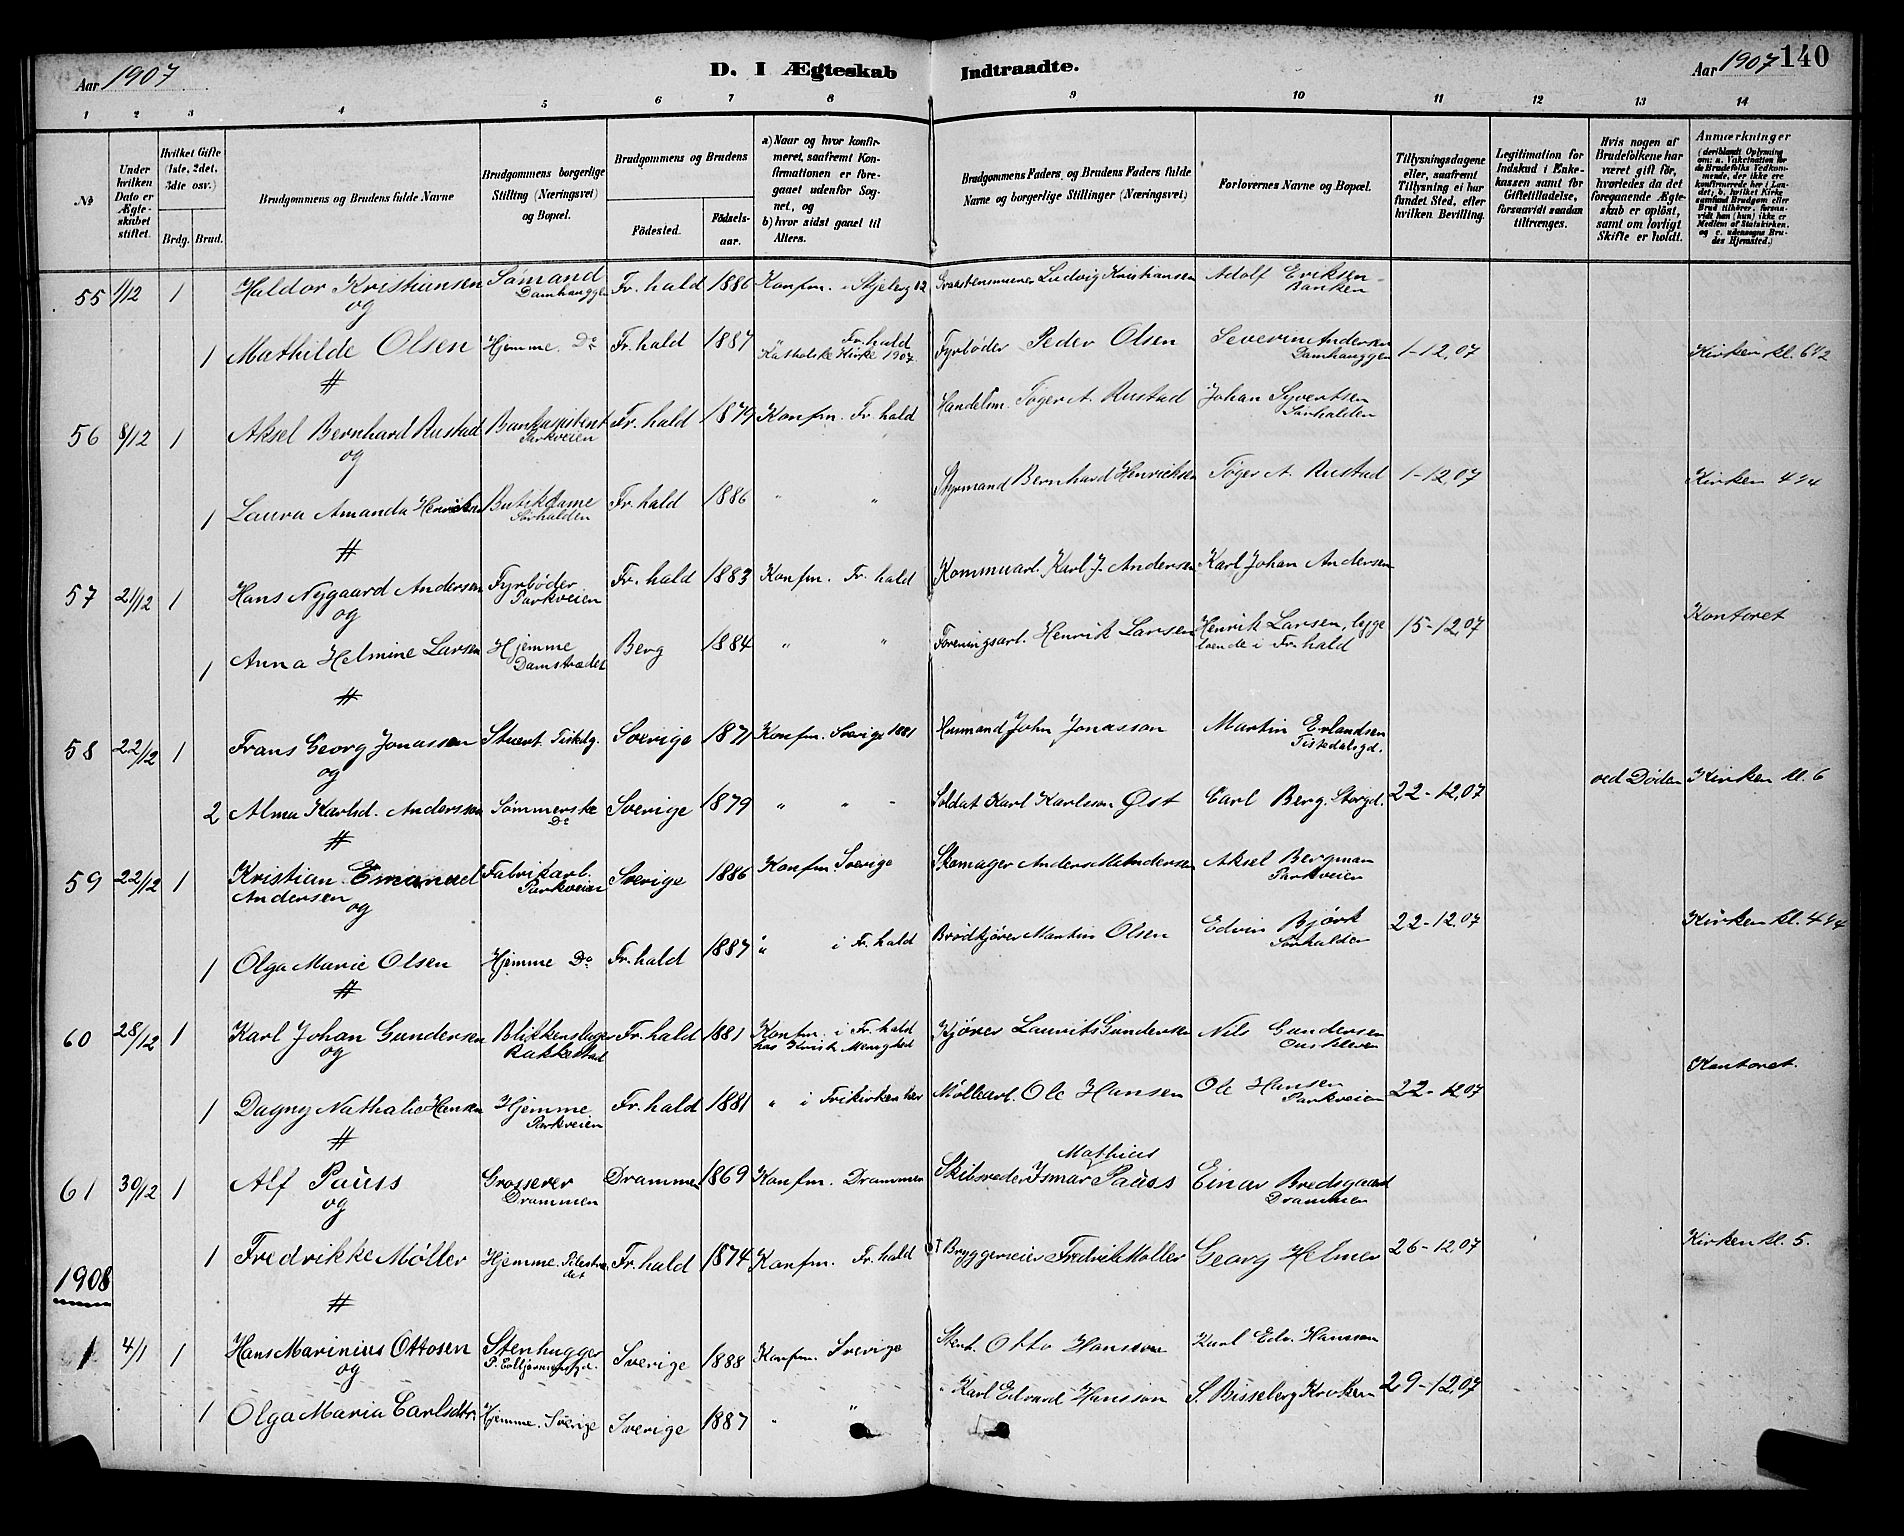 Aar 1907
D. I Ægteskab Indtraadte.
Aar 1907 140
1 2 3 4 5 6 7 8 9 10 11 12 13 14
№
Under hvilken Dato er Ægteskabet stiftet.
Hvilket Gifte (1ste, 2det, 3die osv.)
Brdg. Brud.
Brudgommens og Brudens fulde Navne
Brudgommens borgerlige Stilling (Næringsvei) og Bopæl.
Brudgommens og Brudens
Fødested. Fødselsaar.
a) Naar og hvor konfirmeret, saafremt Konfirmationen er foregaaet udenfor Sognet, og
b) hvor sidst gaaet til Alters.
Brudgommens Faders, og Brudens Faders fulde Navne og borgerlige Stillinger (Næringsvei)
Forlovernes Navne og Bopæl.
Tillysningsdagene eller, saafremt Tillysning ei har fundet Sted, efter hvilken Bevilling.
Legitimation for Indskud i Enkekassen samt for Giftetilladelse, forsaavidt saadan tiltrænges.
Hvis nogen af Brudefolkene har været gift før, hvorledes da det foregaaende Ægteskab er opløst, samt om lovligt Skifte er holdt.
Anmærkninger
(deriblandt Oplysning om: a. Vakcination for de Brudefolks Vedkommende, der ikke ere konfirmerede her i Landet; b. hvilket Kirkesamfund Brudgom eller Brud tilhører, forsaavidt han (hun) ikke er Medlem af Statskirken, og c. udensogns Brudes Hjemsted.)
55 1/12 1 Haldor Kristiansen Sømand Fr.hald 1886 Konfm. i Skjeberg 12 Ludvig Kristiansen Adolf Eriksen
og Damhaugge Banken
1 Mathilde Olsen Hjemme Do Fr.hald 1887 Fr.hald Katholske Kirke 1907 Fyrbøder Peder Olsen Severin Andersen Damhauggen 1-12,07 Kirken kl. 6 1/2
#
56 8/12 1 Aksel Bernhard Rustad Bankassistent Parkveien Fr.hald 1879 Konfm. Fr.hald Handelsm. Tøger A. Rustad Johan Syvertsen Sørhalden
og
1 Laura Amanda Henriksen Butikdame Sørhalden Fr.hald 1886 " " Styrmand Bernhard Henriksen Tøger A. Rustad 1-12,07 Kirken 4 3/4
#
57 21/12 1 Hans Nygaard Andersen Fyrbøder Parkveien Fr.hald 1883 Konfm. Fr.hald Kommuarb. Karl J. Andersen Karl Johan Andersen
og Kontoret
1 Anna Helmine Larsen Hjemme Damstrædet Berg 1884 " " Foreningsarb. Henrik Larsen Henrik Larsen, begge boende i Fr.hald 15-12,07
#
58 22/12 1 Frans Georg Jonassen Stuert. Tistedg. Sverige 1871 Konfm. Sverige 1881 Husmand John Jonasson Martin Erlandsen Tistedalsgd.
og
2 Alma Karlsd. Andersson Sømmerske Do Sverige 1879 " " " Soldat Karl Karlsson Øst Carl Berg. Storgd. 22-12,07 ved Døden Kirken kl. 6
#
59 22/12 1 Kristian Emanuel Andersen Fabrikarb. Parkveien Sverige 1886 Konfm. Sverige Skomager Anders M. Andersen Aksel Bergman Parkveien
og
1 Olga Marie Olsen Hjemme Do Fr.hald 1887 " i Fr.hald Brødkjører Martin Olsen Edvin Bjørk Sørhalden 22-12,07 Kirken kl. 4 3/4
#
60 28/12 1 Karl Johan Gundersen Blikkenslager Rakkestad Fr.hald 1881 Konfm. i Fr.hald hos Krist. Menighed Kjører Laurits Gundersen Nils Gundersen
og Kontoret.
1 Dagny Nathalie Hansen Hjemme Parkveien Fr.hald 1881 " i Frikirken her Møllearb. Ole Hansen Ole Hansen Parkveien 22-12,07
#
61 30/12 1 Alf Pauss Grosserer Drammen Drammen 1869 Konfm. Drammen Skibsreder Ismar Mathius Pauss Einar Bredsgaard Drammen
og
1 Fredrikke Møller Hjemme. Pilestrædet Fr.hald 1874 Konfm. Fr.hald † Bryggerieier Fredrik Møller Georg Helmer 26-12,07 Kirken kl. 5.
1908
#
1 4/1 1 Hans Marinius Ottosen Stenhugger Sverige 1888 Konfm. Sverige Stenh. Otto Hansson Karl Edv. Hansson
og
1 Olga Maria Carlsdtr. Hjemme. Sverige Sverige 1887 " " " Karl Edvard Hansson S. Bisseberg Kroken 29-12,07